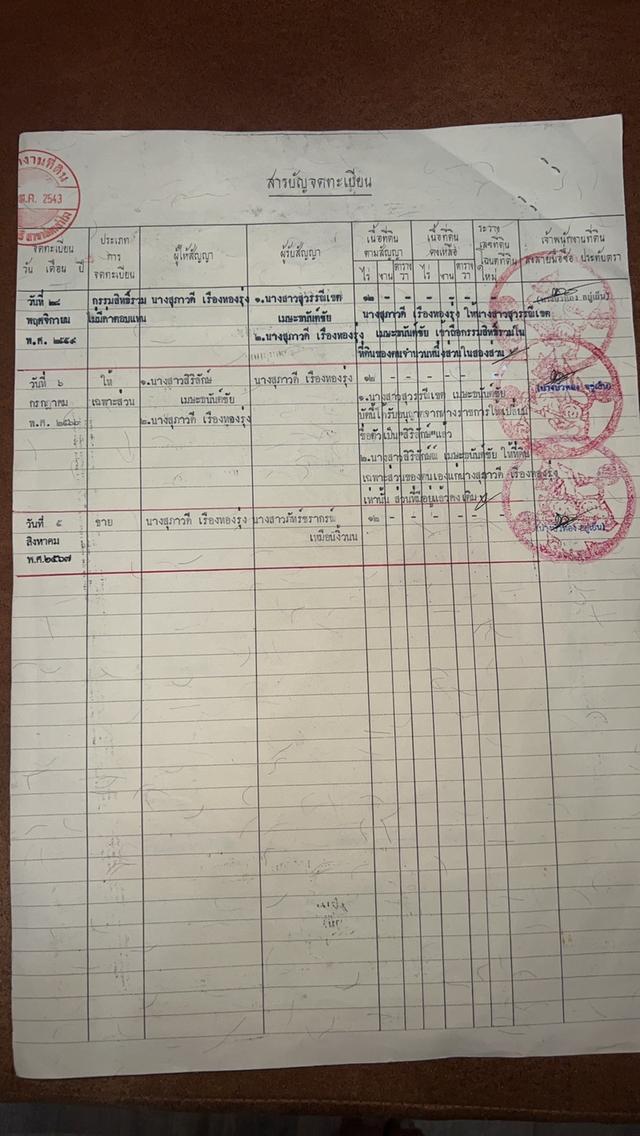 งานที่ดิน
พ.ค. 2543
สารบัญจดทะเบียน
จดทะเบียน
วัน เดือน ปี
ประเภท
การ
จดทะเบียน
ผู้ให้สัญญา
ผู้รับสัญญา
เนื้อที่ดิน
ตามสัญญา
ไร่ งาน ตาราง
วา
เนื้อที่ดิน
คงเหลือ
ไร่ งาน ตาราง
วา
ระวาง
เลขที่ดิน
โฉนดที่ดิน
ใหม่
เจ้าพนักงานที่ดิน
ลงลายมือชื่อ ประทับตรา
วันที่ ๒๘ กรรมสิทธิ์รวม นางสุภาวดี เรืองทองรุ่ง ๑.นางสาวสุวรรณีเขต ๑๒ - - - - -
พฤศจิกายน ไม่มีค่าตอบแทน เมษะขนันต์ชัย นางสุภาวดี เรืองทองรุ่ง ให้นางสาวสุวรรณีเขต
พ.ศ. ๒๕๕๙ ๒.นางสุภาวดี เรืองทองรุ่ง เมษะขนันต์ชัย เข้าถือกรรมสิทธิ์รวมใน
ที่ดินของตนจำนวนหนึ่งส่วนในสองส่วน
วันที่ ๖ ให้ ๑.นางสาวสิริลักษณ์ นางสุภาวดี เรืองทองรุ่ง ๑๒ - - - - -
กรกฎาคม เฉพาะส่วน เมษะขนันต์ชัย ๑.นางสาวสุวรรณีเขต เมษะขนันต์ชัย
พ.ศ. ๒๕๖๖ ๒.นางสุภาวดี เรืองทองรุ่ง บัดนี้ได้รับอนุญาตจากทางราชการให้เปลี่ยน
ชื่อตัวเป็น"สิริลักษณ์"แล้ว
๒.นางสาวสิริลักษณ์ เมษะขนันต์ชัย ให้ที่ดิน
เฉพาะส่วนของตนเองแก่นางสุภาวดี เรืองทองรุ่ง
เท่านั้น ส่วนที่มีอยู่แล้วคงเดิม
วันที่ ๕ ขาย นางสุภาวดี เรืองทองรุ่ง นางสาวภัทร์ชรากรณ์ ๑๒ - - - - -
สิงหาคม เหมือนงิ้วนน
พ.ศ.๒๕๖๗